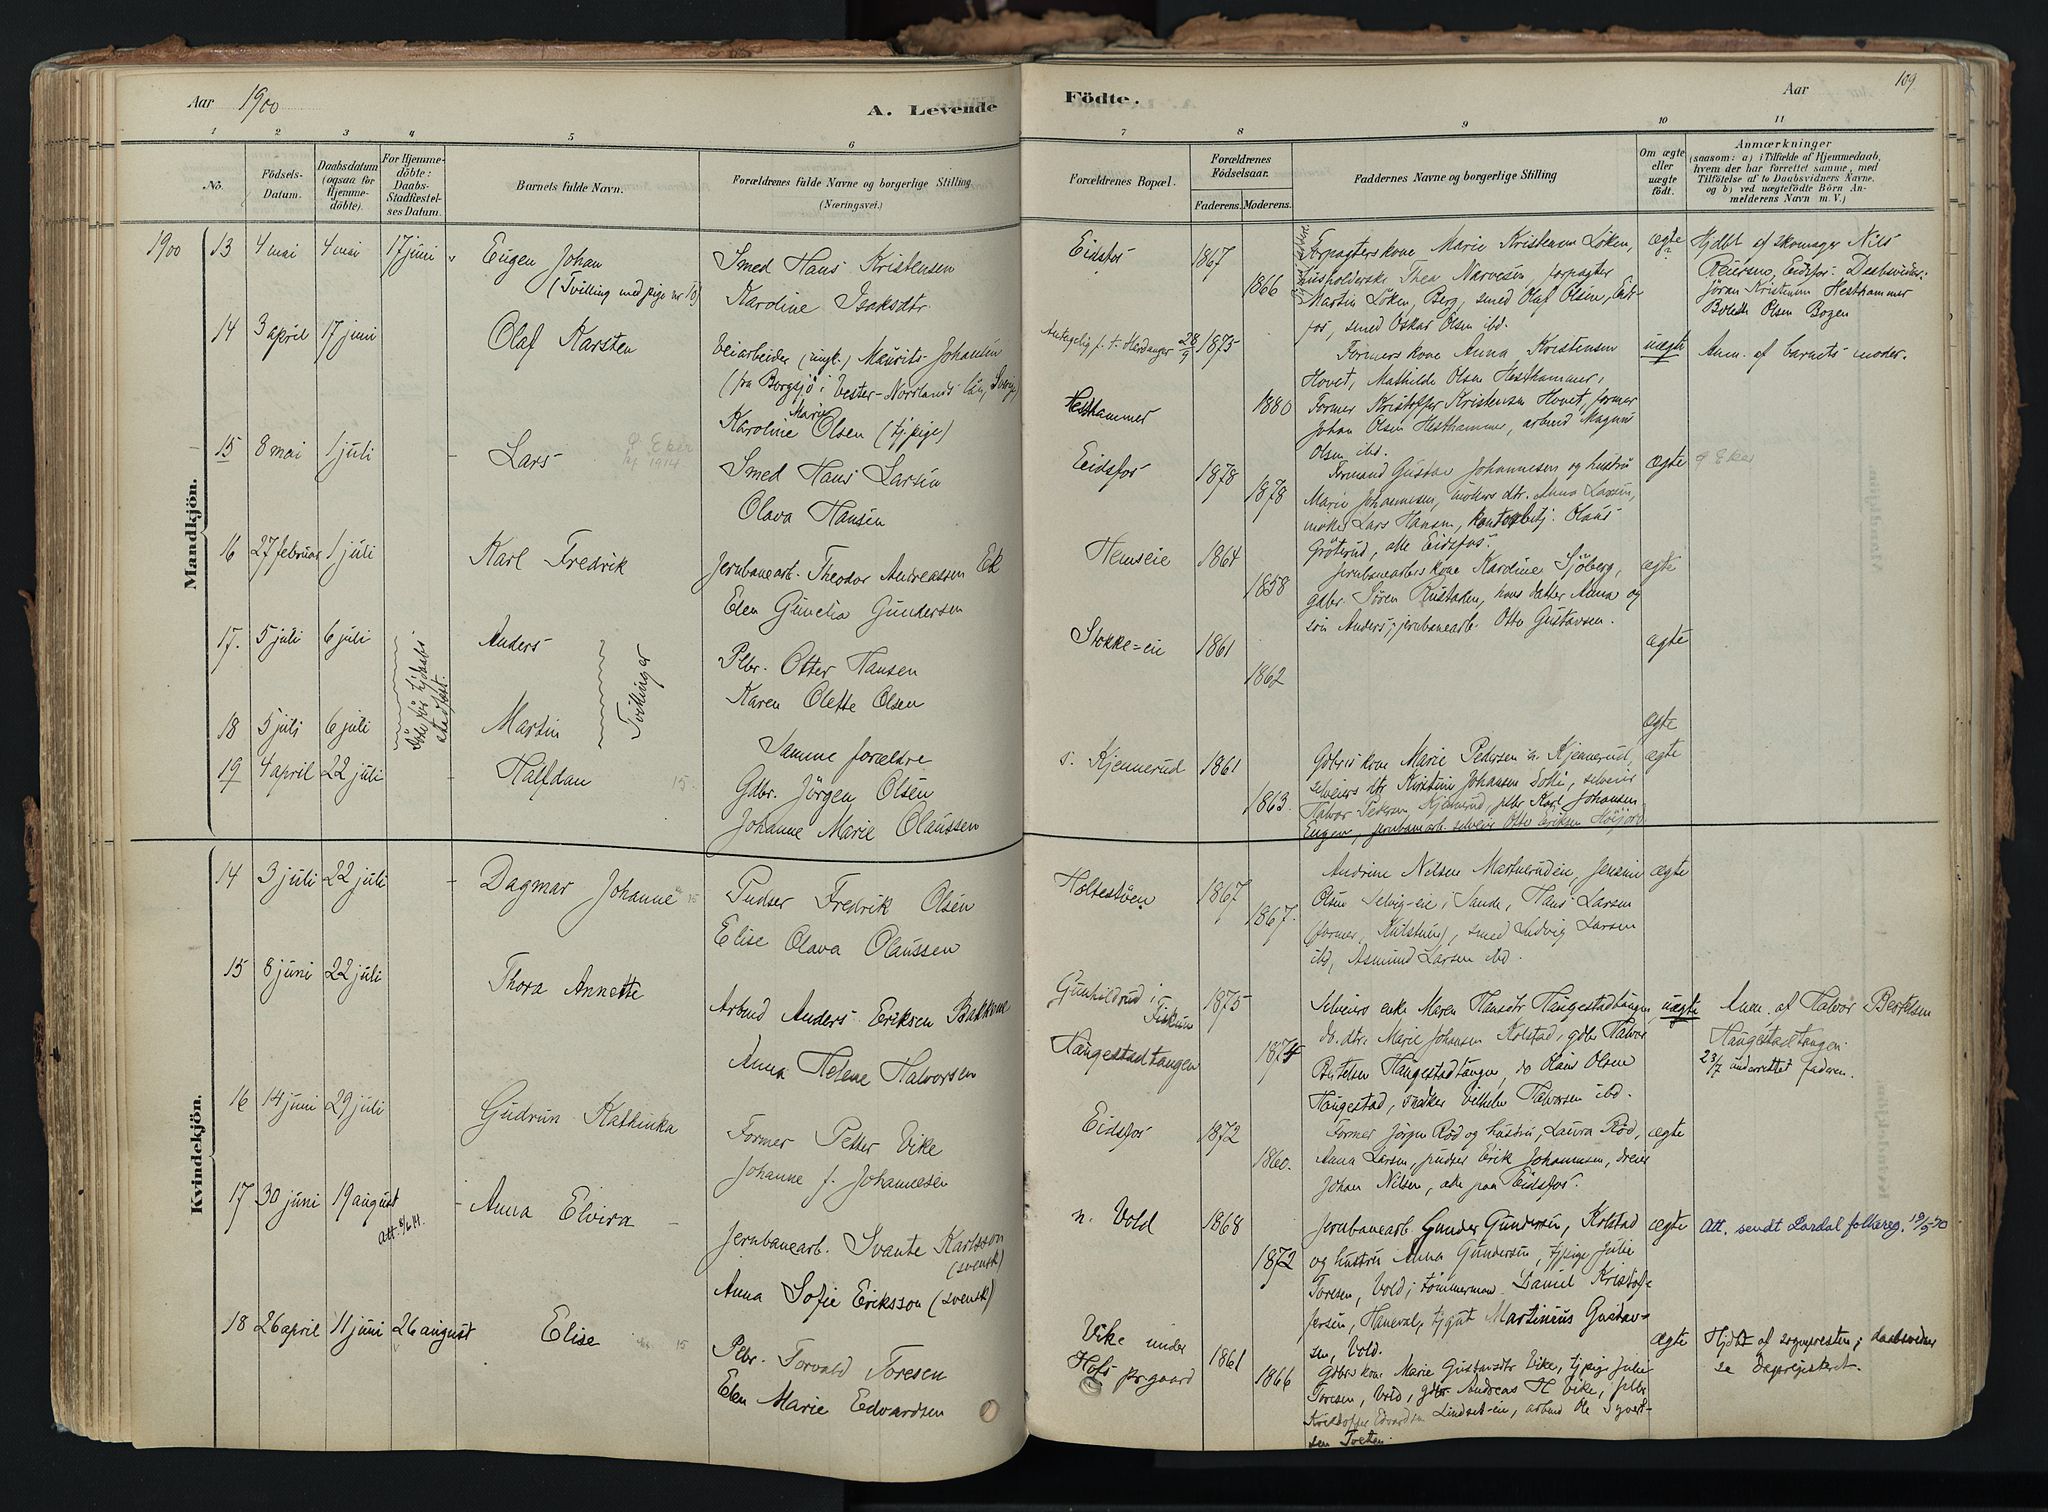 Aar 1900
A. Levende
Födte.
Aar
109
1 2 3 4 5 6 7 8 9 10 11
No.
Födsels-
Datum.
Daabsdatum
(ogsaa for
Hjemme-
döbte).
For Hjemme-
döbte:
Daabs-
Stadfæstel-
ses Datum.
Barnets fulde Navn.
Forældrenes fulde Navne og borgerlige Stilling
(Næringsvei.)
Forældrenes Bopæl.
Forældrenes
Födselsaar.
Faderens. Moderens.
Faddernes Navne og borgerlige Stilling
Om ægte
eller
uægte
født.
Anmærkninger
(saasom: a) i Tilfælde af Hjemmedaab,
hvem der har forrettet samme, med
Tilföielse af to Daabsvidners Navne.
og b) ved uægtefödte Börn An-
melderens Navn m. V.)
Mandkjön.
1900 13 4 mai 4 mai 17 juni Eugen Johan
(Tvilling med pige nr. 10)
Smed Hans Kristensen
Karoline Isaksdtr.
Eidsfos 1867
1866
Forpagterskone Marie Kristensen Löken,
Husholderske Thea Narvesen, forpagter
Martin Löken, Berg, smed Olaf Olsen, Eids-
fos, smed Oskar Olsen ibd.
ægte
Hjdbt af skomager Nils
Reiersen, Eidsfos. Daabsvidner:
Jöran Kristensen Hesthammer
Olsen Bogen
14 3 april 17 juni Olaf Karsten
Veiarbeider (ungk.) Maurits Johansen
(fra Borgsjö i Vester-Norrlands län, Sverige)
Karoline Marie Olsen (tj.pige)
Antagelig p. t. Hardanger 28/9 1875
Hesthammer 1880
Formers kone Anna Kristensen
Hovet, Mathilde Olsen Hesthammer,
Former Kristoffer Kristensen Hovet, former
Johan Olsen Hesthammer, arbmd Magnus
Olsen ibd.
uægte
Anm. af barnets moder.
15 8 mai 1 juli - Lars
g. Eker
1914
Smed Hans Larsen
Olava Hansen
Eidsfos 1878
1878
Formand Gustav Johannesen og hustru
Marie Johannesen, moders dtr. Anna Larsen,
Lars Hansen, Olaus
Gröterud, alle Eidsfos.
ægte g Eker
16 27 februar 1 juli Karl Fredrik
Jernbanearb. Theodor Andreassen Ek
Elen Gunelia Gundersen
Hemseie 1864
1858
Jernbanearbs kone Karoline Sjöberg,
gdbr. Sören Rustaden, hans datter Anna og
sön Anders, jernbanearb. Otto Gustavsen.
ægte
17. 5 juli 6 juli Anders
Döde för hjdaabs
stadfæst.
Tvillinger
Plbr. Otter Hansen
Karen Olette Olsen
Stokke-eie 1861
1862
ægte
18 5 juli 6 juli Martin
Samme forældre
ægte
19 4 april 22 juli - Halfdan 15.
Gdbr. Jörgen Olsen
Johanne Marie Olaussen
s. Kjennerud 1861
1863.
Gdbrs kone Marie Pedersen n. Kjennerud,
selveiers dtr. Kristine Johansen Solli, selveier
Halvor Pedersen Kjennerud, plbr Karl Johansen
Engen, jernbanearb. selveier Otto Eriksen Höijord
ægte
Kvindekjön.
14 3 juli 22 juli - Dagmar Johanne 15
Pudser Fredrik Olsen
Elise Olava Olaussen
Holtestöen 1867
1867.
Andrine Nilsen Martineruden, Jensine
Olsen Selvig-eie i Sande, Hans Larsen
(former, Kulsting), smed Ludvig Larsen
ibd, Asmund Larsen ibd.
ægte
15 8 juni 22 juli Thora Annette
Arbmd Anders Eriksen Bakkene
Anna Helene Halvorsen
Gunhildrud i
Fiskum 1875
Haugestadtangen 1874
Selveiers enke Maren Hansdtr Haugestadtangen
do. dtr. Marie Johansen Kolstad, gdbr Halvor
Bertelsen Haugestadtangen, do Olaus Olsen
Haugestad, snedker Vilhelm Halvorsen ibd.
uægte
Anm. af Halvor Bertelsen
Haugestadtangen.
23/7 underrettet faderen.
16 14 juni 29 juli Gudrun Kathinka
Former Petter Vike
Johanne f. Johannesen
Eidsfos 1872
1860.
Former Jörgen Röd og hustru, Laura Röd,
Anna Larsen, pudser Erik Johannesen, dreier
Johan Nilsen, alle paa Eidsfos.
ægte
17 30 juni 19 august - Anna Elvira -
Att. 8/6 41.
Jernbanearb. Svante Karlsson
(svensk)
Anna Sofie Eriksson (svensk)
n. Vold 1868
1872
Jernbanearb Gunder Gundersen, Kolstad
og hustru Anna Gundersen, tj.pige Julie
Toresen, Vold, tömmermand Daniel Kristof-
fersen, Haneval, tj.gut Martinius Gustav-
sen, Vold.
ægte
Att. sendt Lardal folkereg. 19/9 70
18 26 april 11 juni 26 august Elise 15
Plbr. Torvald Toresen
Elen Marie Edvardsen
Vike under
Hofs pr.gaard 1861
1866
Gdbrs kone Marie Gustavsdtr Vike, tj.pige Julie
Toresen, Vold, gdbr. Andreas H Vike, plbr
Kristoffer Edvardsen Lindset-eie, arbmd Ole Syvert-
sen Tvetten.
ægte
Hjdbt af sognepresten; daabsvidner
se Dagregisteret.